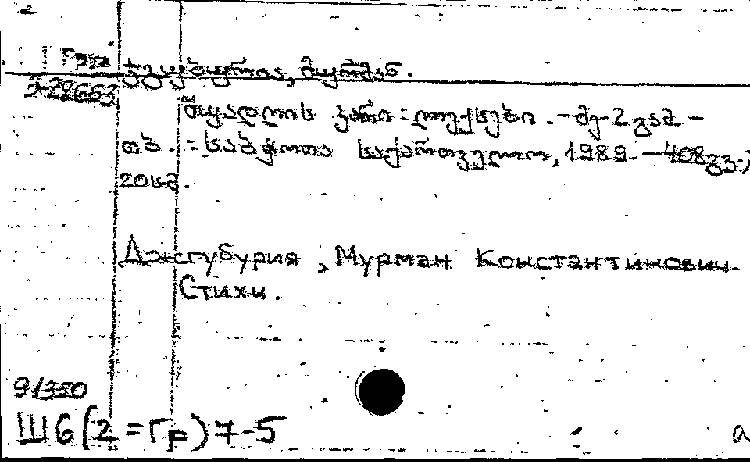 Груз
3-28663
ჯგუბურია, მურმან.
თვალღის კარი : ლექსები. - მე-2 გამ -
თბ. : საბჭოთა საქართველო, 1989. - 408გვ.;
20სმ.
Джгубурия, Мурман Константинович.
Стихи.
91350
Ш6(2=Гр)7-5
а